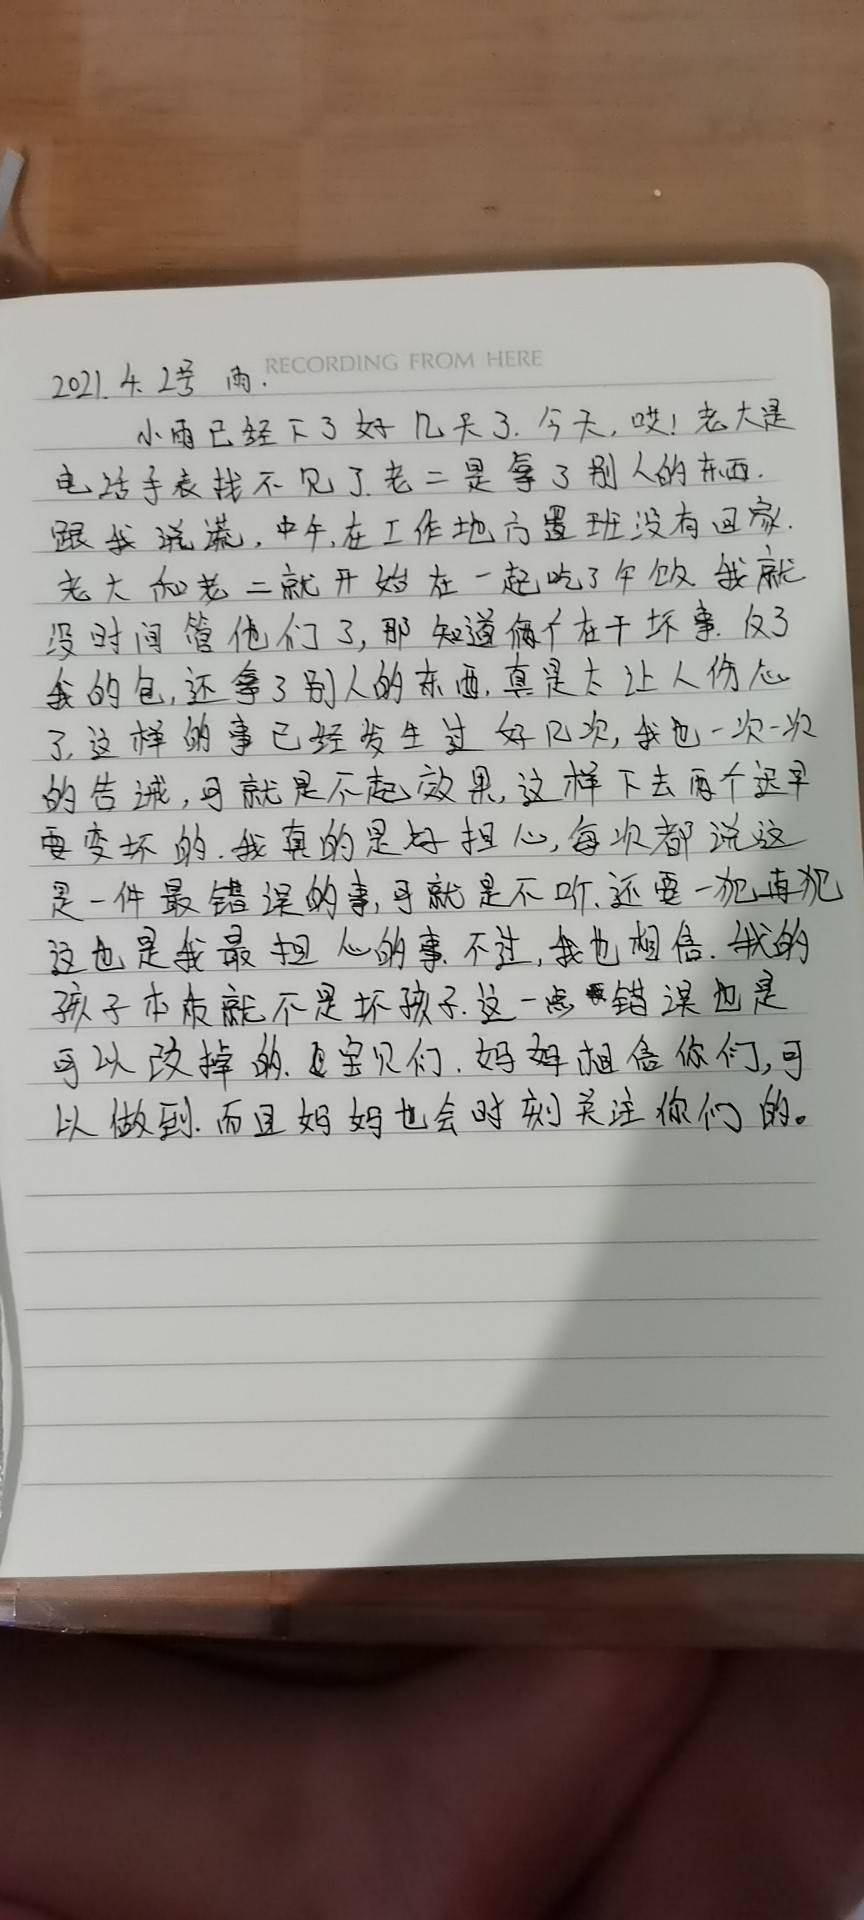 RECORDING FROM HERE
2021. 4. 2号 雨.
小雨已经下了好几天了. 今天, 哎! 老大是
电话手表找不见了. 老二是拿了别人的东西.
跟我说谎, 中午, 在工作地方置班没有回家.
老大和老二就开始在一起吃了午饭 我就
没时间管他们了, 那知道俩个在干坏事. 反了
我的包, 还拿了别人的东西, 真是太让人伤心
了, 这样的事已经发生过好几次, 我也一次一次
的告诫, 可就是不起效果, 这样下去两个迟早
要变坏的. 我真的是好担心, 每次都说这
是一件最错误的事, 可就是不听. 还要一犯再犯
这也是我最担心的事. 不过, 我也相信. 我的
孩子本质就不是坏孩子. 这一点错误也是
可以改掉的. 宝贝们. 妈妈相信你们, 可
以做到. 而且妈妈也会时刻关注你们的。